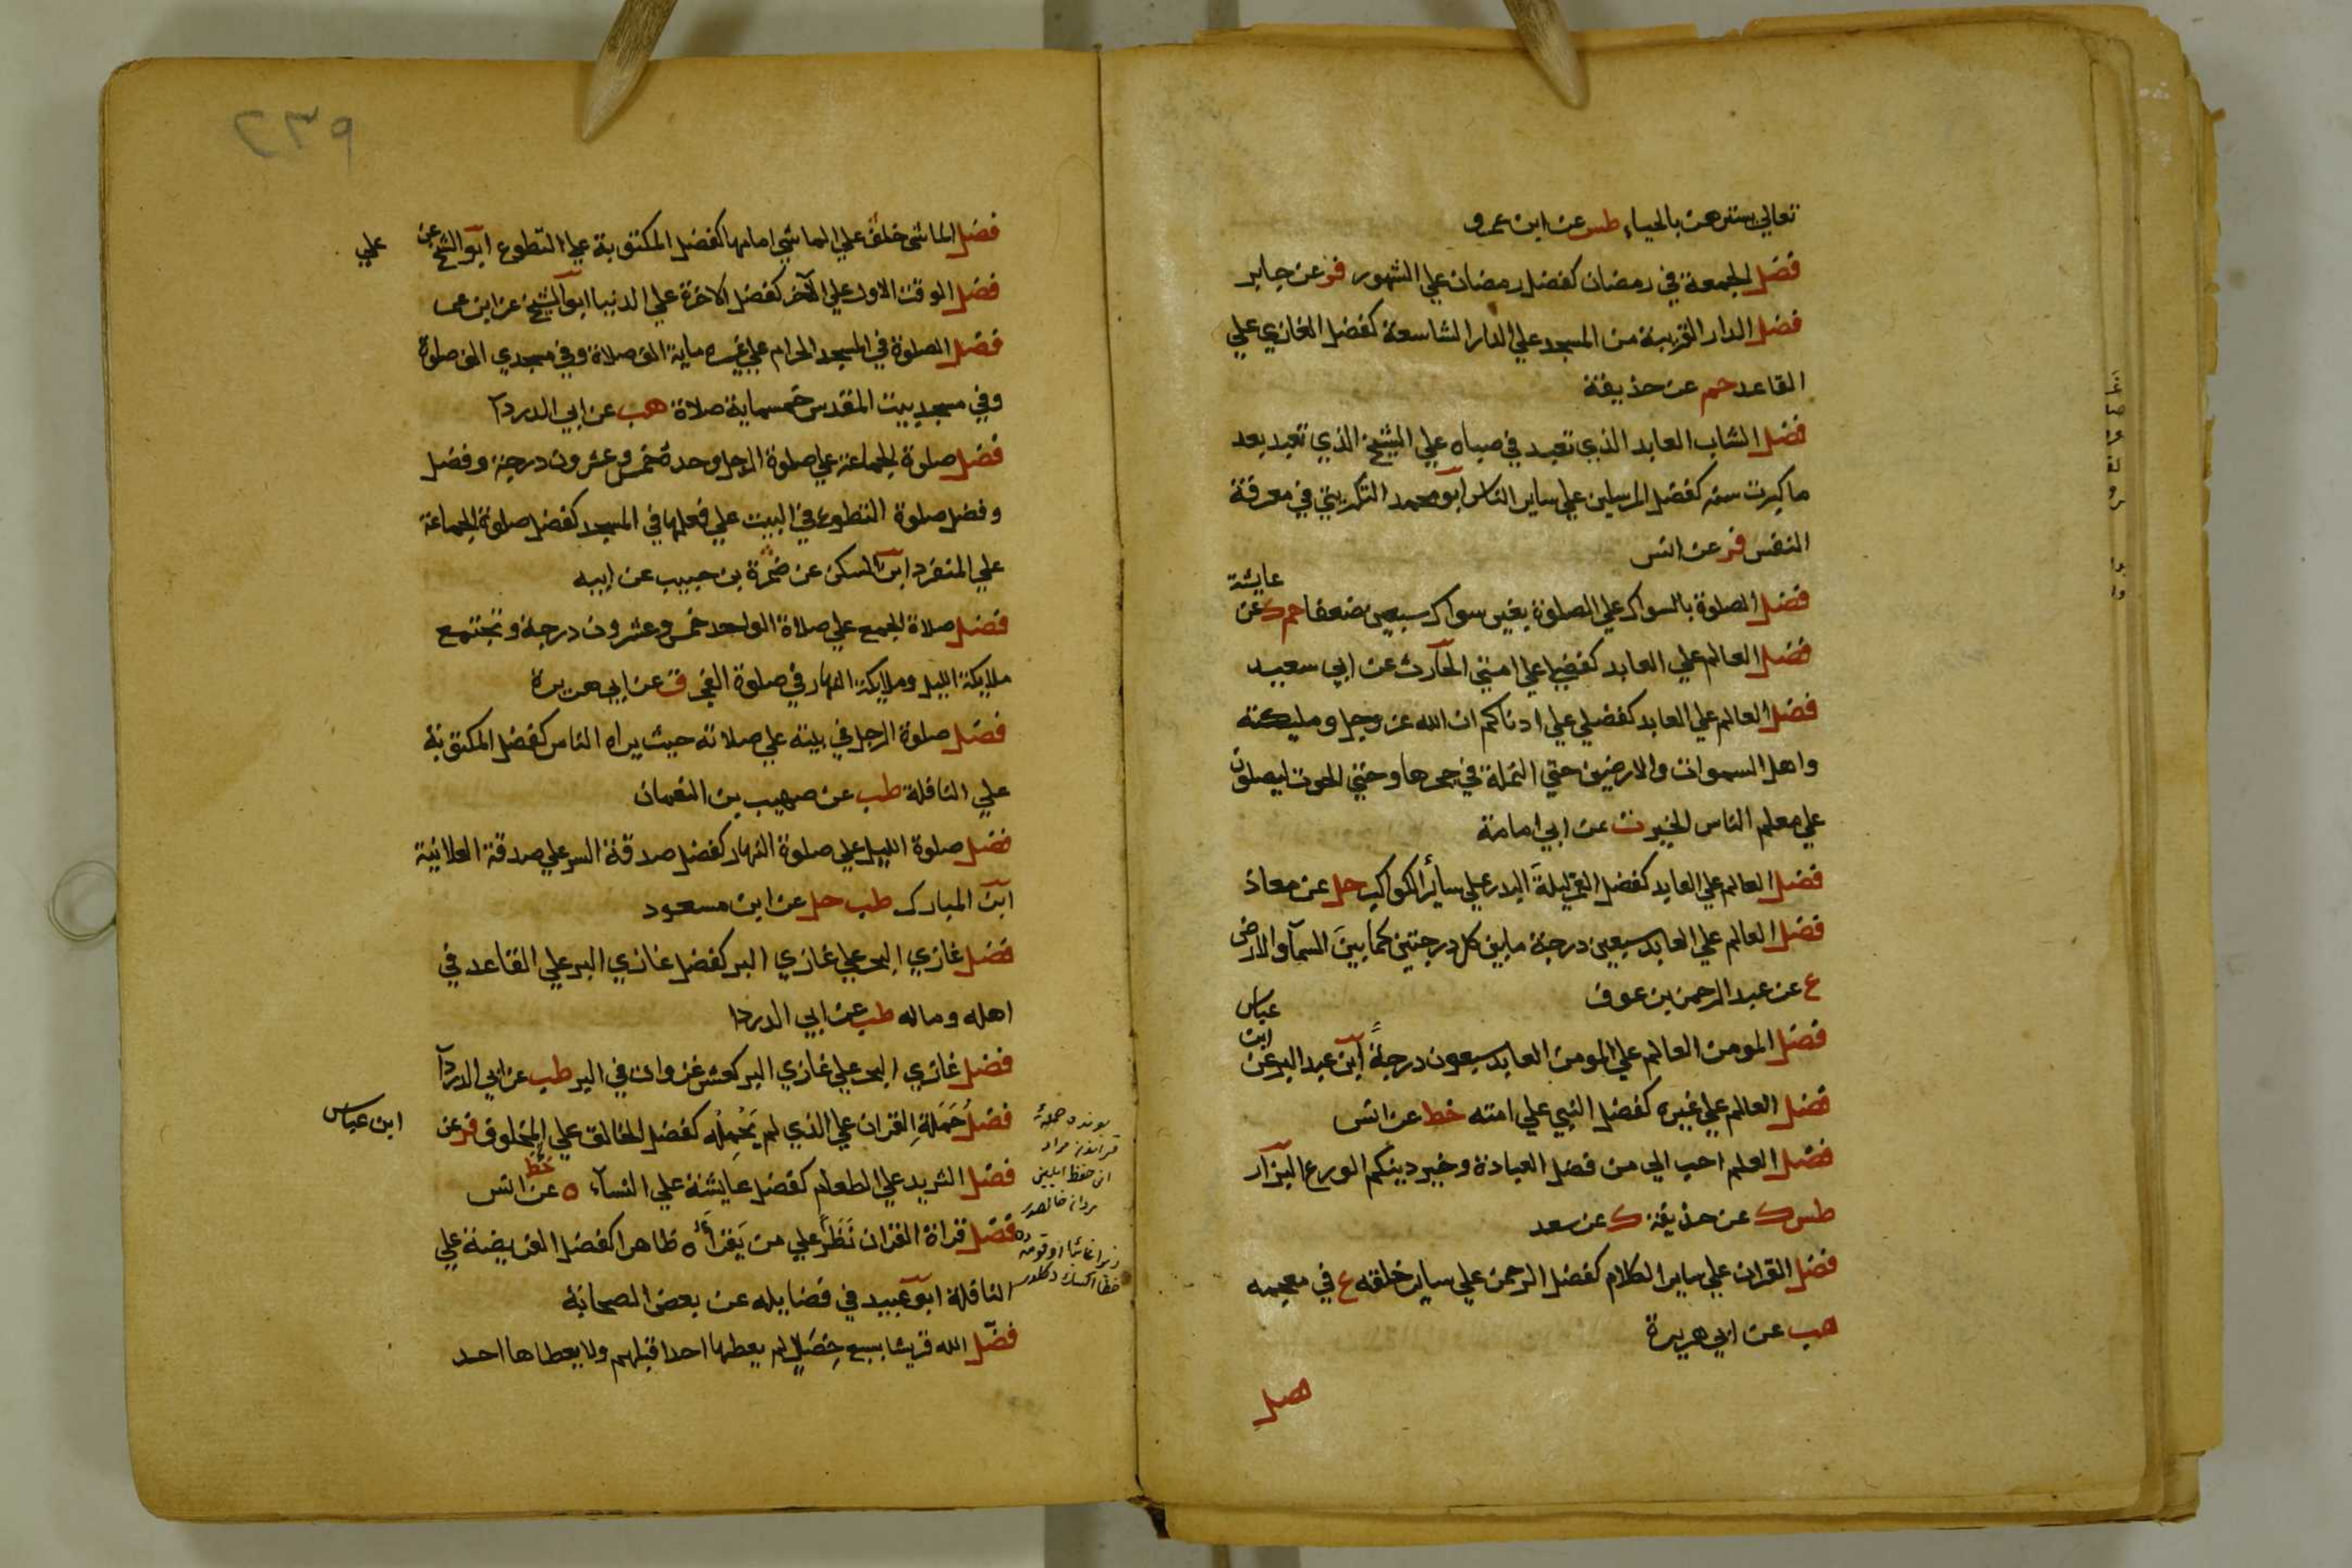 تعالي سترهن بالحياء طس عن ابن عمرو
فضل الجمعة في رمضان كفضل رمضان علي الشهور فر عن جابر
فضل الدار القريبة من المسجد علي الدار الشاسعة كفضل الغازي علي
القاعد حم عن حذيفة
فضل الشاب العابد الذي تعبد في صباه علي الشيخ الذي تعبد بعد
ما كبرت سنه كفضل المرسلين علي ساير الناس ابو محمد التكريتي في معرفة
النفس فر عن انس
فضل الصلوة بالسواك علي الصلوة بغير سواك سبعين ضعفا حم ك عن عايشة
فضل العالم علي العابد كفضلي علي امتي الحارث عن ابي سعيد
فضل العالم علي العابد كفضلي علي ادناكم ان الله عز وجل ومليكته
واهل السموات والارضين حتي النملة في جحرها وحتي الحوت ليصلون
علي معلم الناس الخير ت عن ابي امامة
فضل العالم علي العابد كفضل القمر ليلة البدر علي سائر الكواكب حل عن معاذ
فضل العالم علي العابد سبعين درجة ما بين كل درجتين كما بين السمآ والارض
ع عن عبد الرحمن بن عوف
فضل المومن العالم علي المومن العابد سبعون درجة ابن عبد البر عن ابن عباس
فضل العالم علي غيره كفضل النبي علي امته خط عن انس
فضل العلم احب الي من فضل العبادة وخير دينكم الورع البزار
طس ك عن حذيفة ك عن سعد
فضل القران علي ساير الكلام كفضل الرحمن علي ساير خلقه ع في معجمه
هب عن ابي هريرة
فضل
٢٣٩
فضل الماشي خلف علي الماشي امامها كفضل المكتوبة علي التطوع ابو الشيخ عن علي
فضل الوقت الاول علي الآخر كفضل الاخرة علي الدنيا ابو الشيخ عن ابن عمر
فضل الصلوة في المسجد الحرام علي غيره ماية الف صلاة وفي مسجدي الف صلوة
وفي مسجد بيت المقدس خمسماية صلاة هب عن ابي الدردآ
فضل صلوة الجماعة علي صلوة الرجل وحده خمس وعشرون درجة وفضل
وفضل صلوة التطوع في البيت علي فعلها في المسجد كفضل صلوة الجماعة
علي المنفرد ابن السكن عن ضمرة بن حبيب عن ابيه
فضل صلاة الجمع علي صلاة الواحد خمس وعشرون درجة وتجتمع
ملايكة الليل وملايكة النهار في صلوة الفجر ق عن ابي هريرة
فضل صلوة الرجل في بيته علي صلاته حيث يراه الناس كفضل المكتوبة
علي النافلة طب عن صهيب بن النعمان
فضل صلوة الليل علي صلوة النهار كفضل صدقة السر علي صدقة العلانية
ابن المبارك طب حل عن ابن مسعود
فضل غازي البحر علي غازي البر كفضل غازي البر علي القاعد في
اهله وماله طب عن ابي الدردا
فضل غازي البحر علي غازي البر كعشر غزوات في البر طب عن ابي الدردآ
فضل حَمَلَةِ القران علي الذي لم يَحْمِلْه كفضل الخالق علي المخلوق فر عن ابن عباس
فضل الثريد علي الطعام كفضل عايشة علي النسآء ه عن انس
خط
فضل قراة القران نَظَرًا علي من يَقْرَأُه ظاهرا كفضل الفريضة علي
النافلة ابو عبيد في فضايله عن بعض الصحابة
فضّل الله قريشا بسبع خِصَالٍ لم يعطها احد قبلهم ولا يعطاها احد